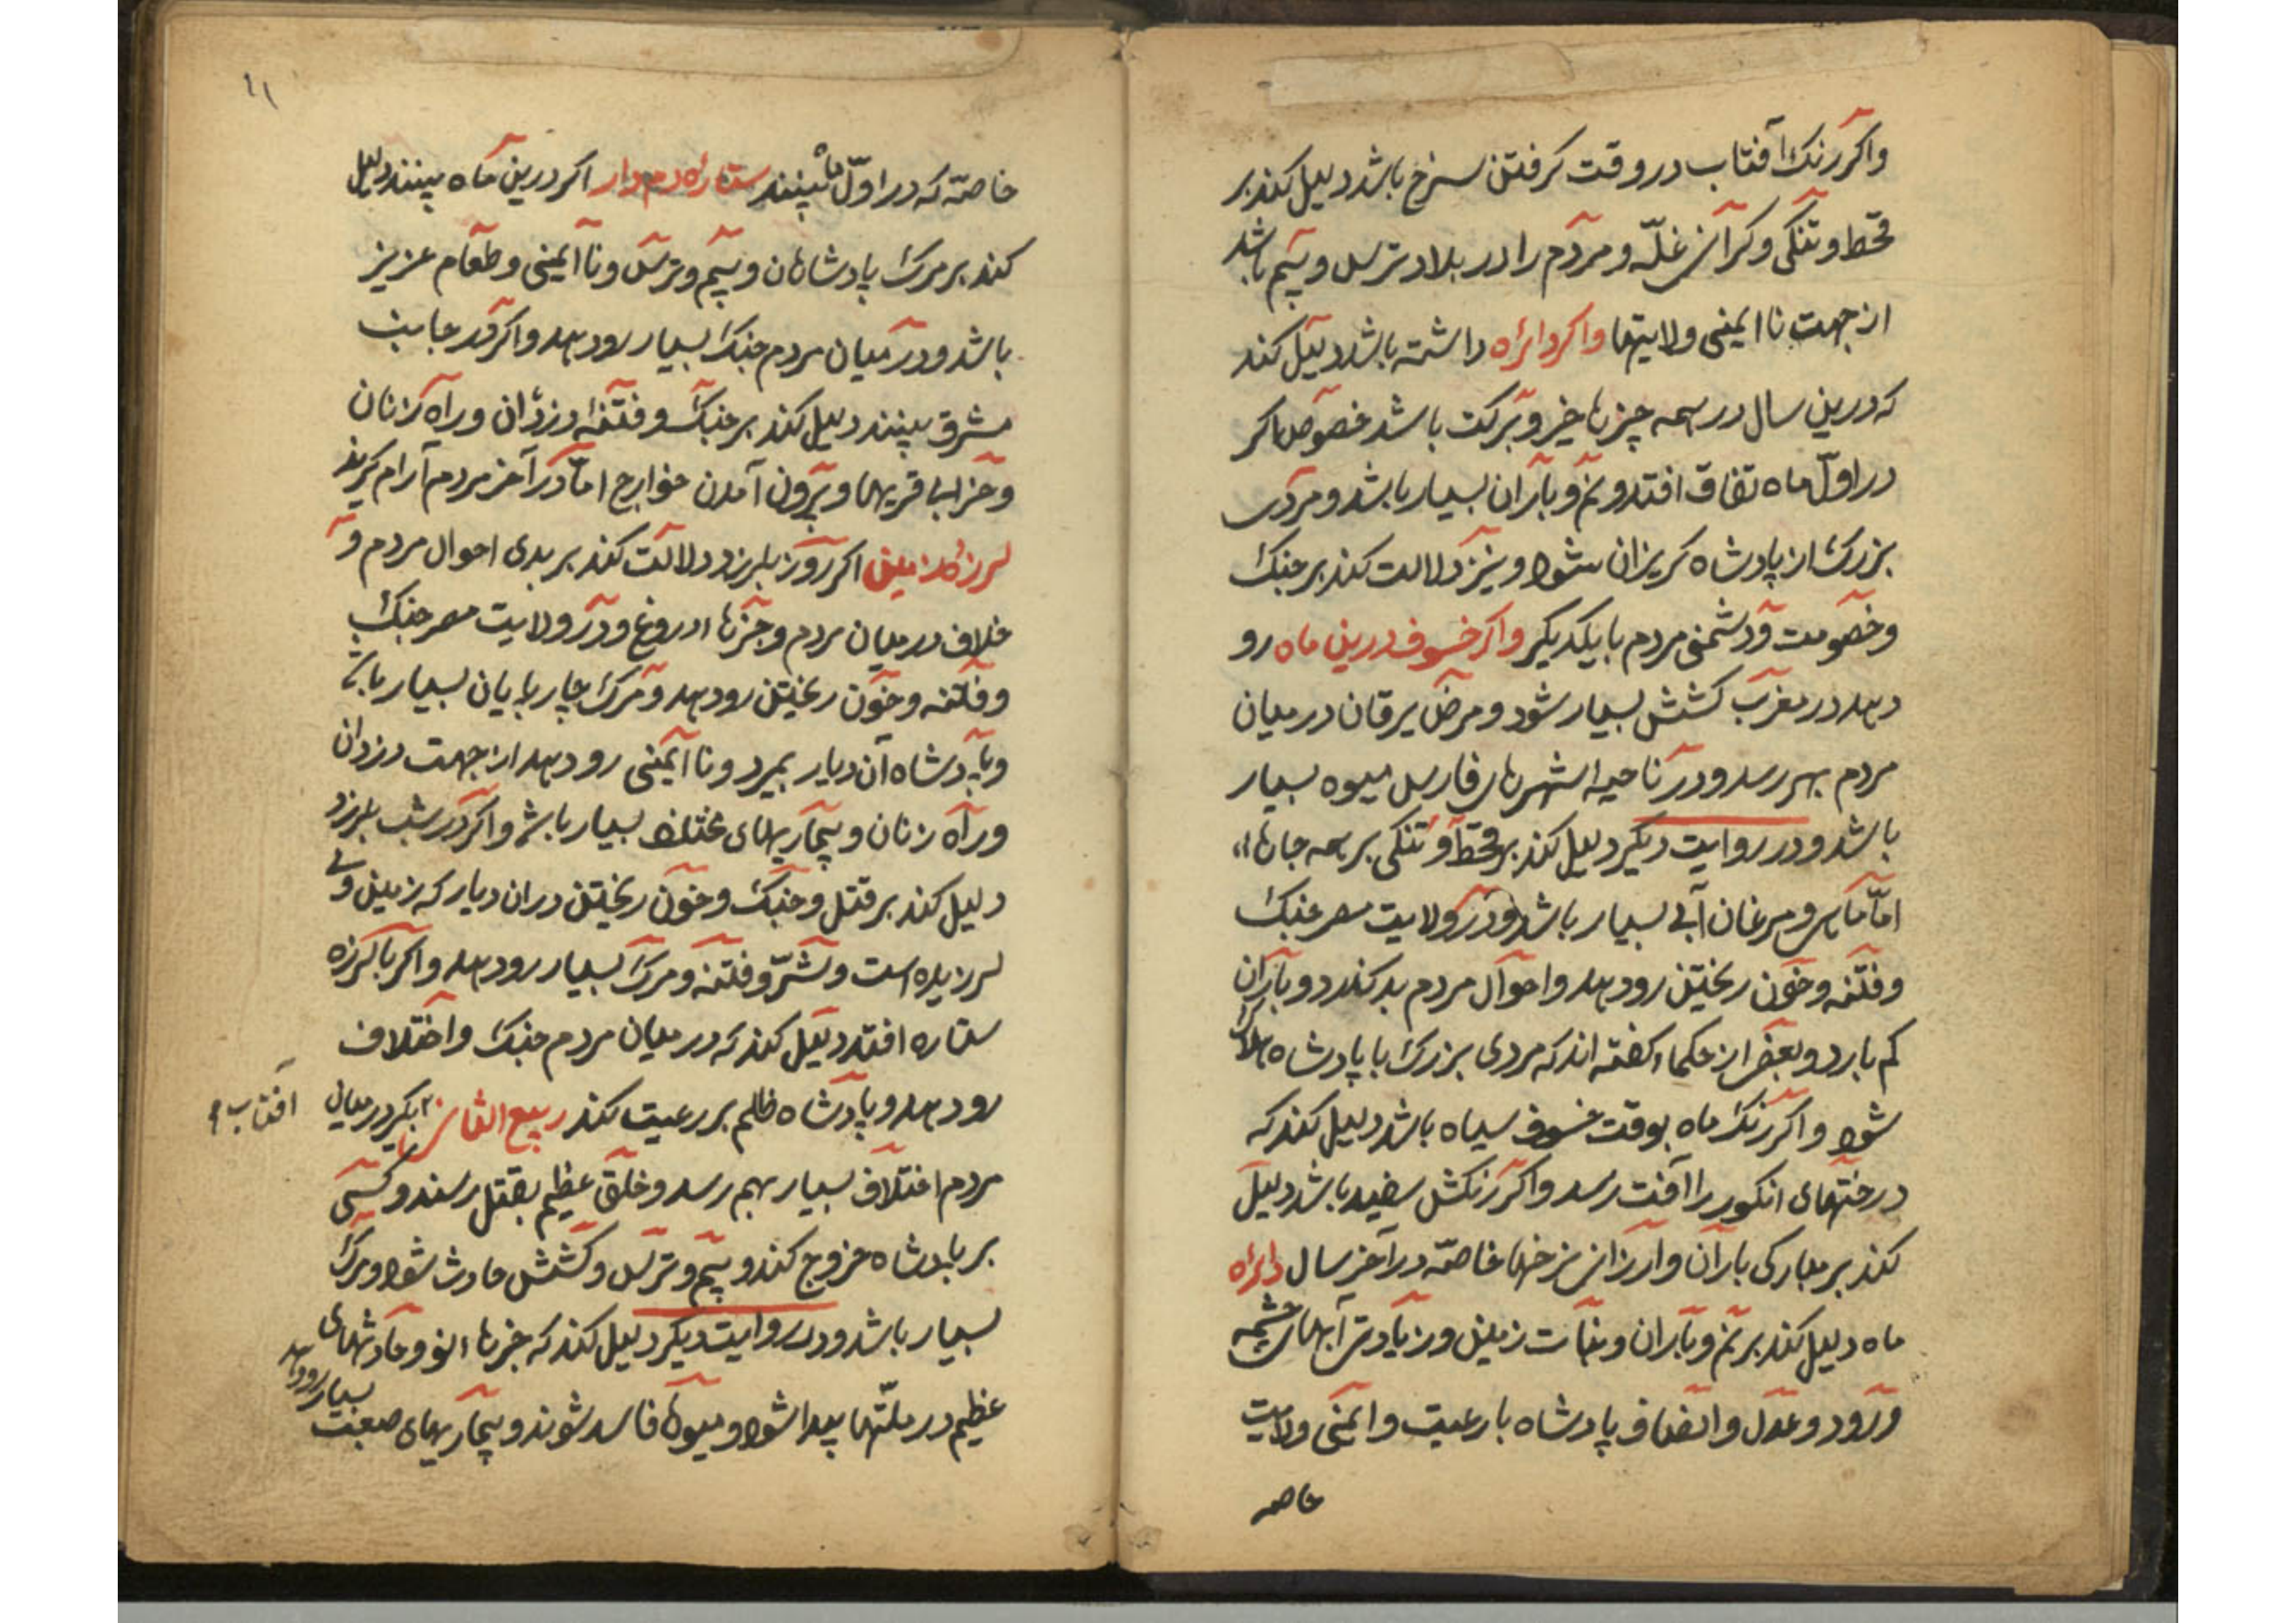 واکر رنک آفتاب در وقت کرفتن سرخ باشد دلیل کند بر
قحط و تنکی و کرانی غلّه و مردم را در بلاد ترس و بیم باشد
از جهت نا ایمنی ولایتها واکر دائره داشته باشد دلیل کند
که درین سال در همه چیزها خیر و برکت باشد خصوصا اکر
در اوّل ماه تفاق افتد و نم و باران بسیار باشد و مردی
بزرک از پادشاه کریزان شود و نیز دلالت کند بر جنک
و خصومت و دشمنی مردم با یکدیکر واکر خسوف درین ماه رو
دهد در مغرب کشش بسیار شود و مرض یرقان در میان
مردم بهم رسد و در ناحیه اشهرهای فارس میوه بسیار
باشد و در روایت دیکر دلیل کند بر قحط و تنکی بر همه جانها
امّا ماهی و مرغان آبی بسیار باشد و در ولایت مصر جنک
و فتنه و خون ریختن رو دهد و احوال مردم بد کندرد و باران
کم بارد و بعضی از حکماء کفته اند که مردی بزرک با پادشاه هلاک
شود واکر رنک ماه بوقت خسوف سیاه باشد دلیل کند که
درختهای انکور را آفت رسد واکر رنکش سفید باشد دلیل
کند بر مبارکی باران و ارزانی نرخها خاصّه در آخر سال دائره
ماه دلیل کند بر نم و باران و نبات زمین و زیادتی آبهای چشمه
و رود و عدل و انصاف پادشاه با رعیت و ایمنی ولایت
خاصه
۱۱
خاصّه که در اوّل ماه بینند ستاره دم دار اکر درین ماه بینند دلیل
کند بر مرک پادشاهان و بیم و ترس و نا ایمنی و طعام عزیز
باشد و در میان مردم جنک بسیار رو دهد واکر در جانب
مشرق بینند دلیل کند بر جنک و فتنهٔ دزدان و راه زنان
و خرابی قریها و بیرون آمدن خوارج امّا در آخر مردم آرام کیرند
لرزهٔ زمین اکر روز بلرزد دلالت کند بر بدی احوال مردم و
خلاف در میان مردم و خبرها ء دروغ و در ولایت مصر جنک
و فتنه و خون ریختن رو دهد و مرک چار پایان بسیار باشد
و پادشاه آن دیار بمیرد و نا ایمنی رو دهد از جهت دزدان
و راه زنان و بیماریهای مختلف بسیار باشد واکر در شب بلرزد
دلیل کند بر قتل و جنک و خون ریختن در ان دیار که زمین وی
لرزیده است و شرّ و فتنه و مرک بسیار رو دهد واکر با لرزه
ستاره افتد دلیل کند که در میان مردم جنک و اختلاف
رو دهد و پادشاه ظلم بر رعیت کند ربیع الثانی بکیرد در میان
افتاب
مردم اختلاف بسیار بهم رسد و خلق عظیم بقتل رسند و کسی
بر پادشاه خروج کند و بیم و ترس و کشش حادث شود و مرک
بسیار باشد و در روایت دیکر دلیل کند که خبرها ء نو و حادثهای
عظیم در ملّتها پیدا شود و میوها فاسد شوند و بیماریهای صعبت
بسیار رو دهد